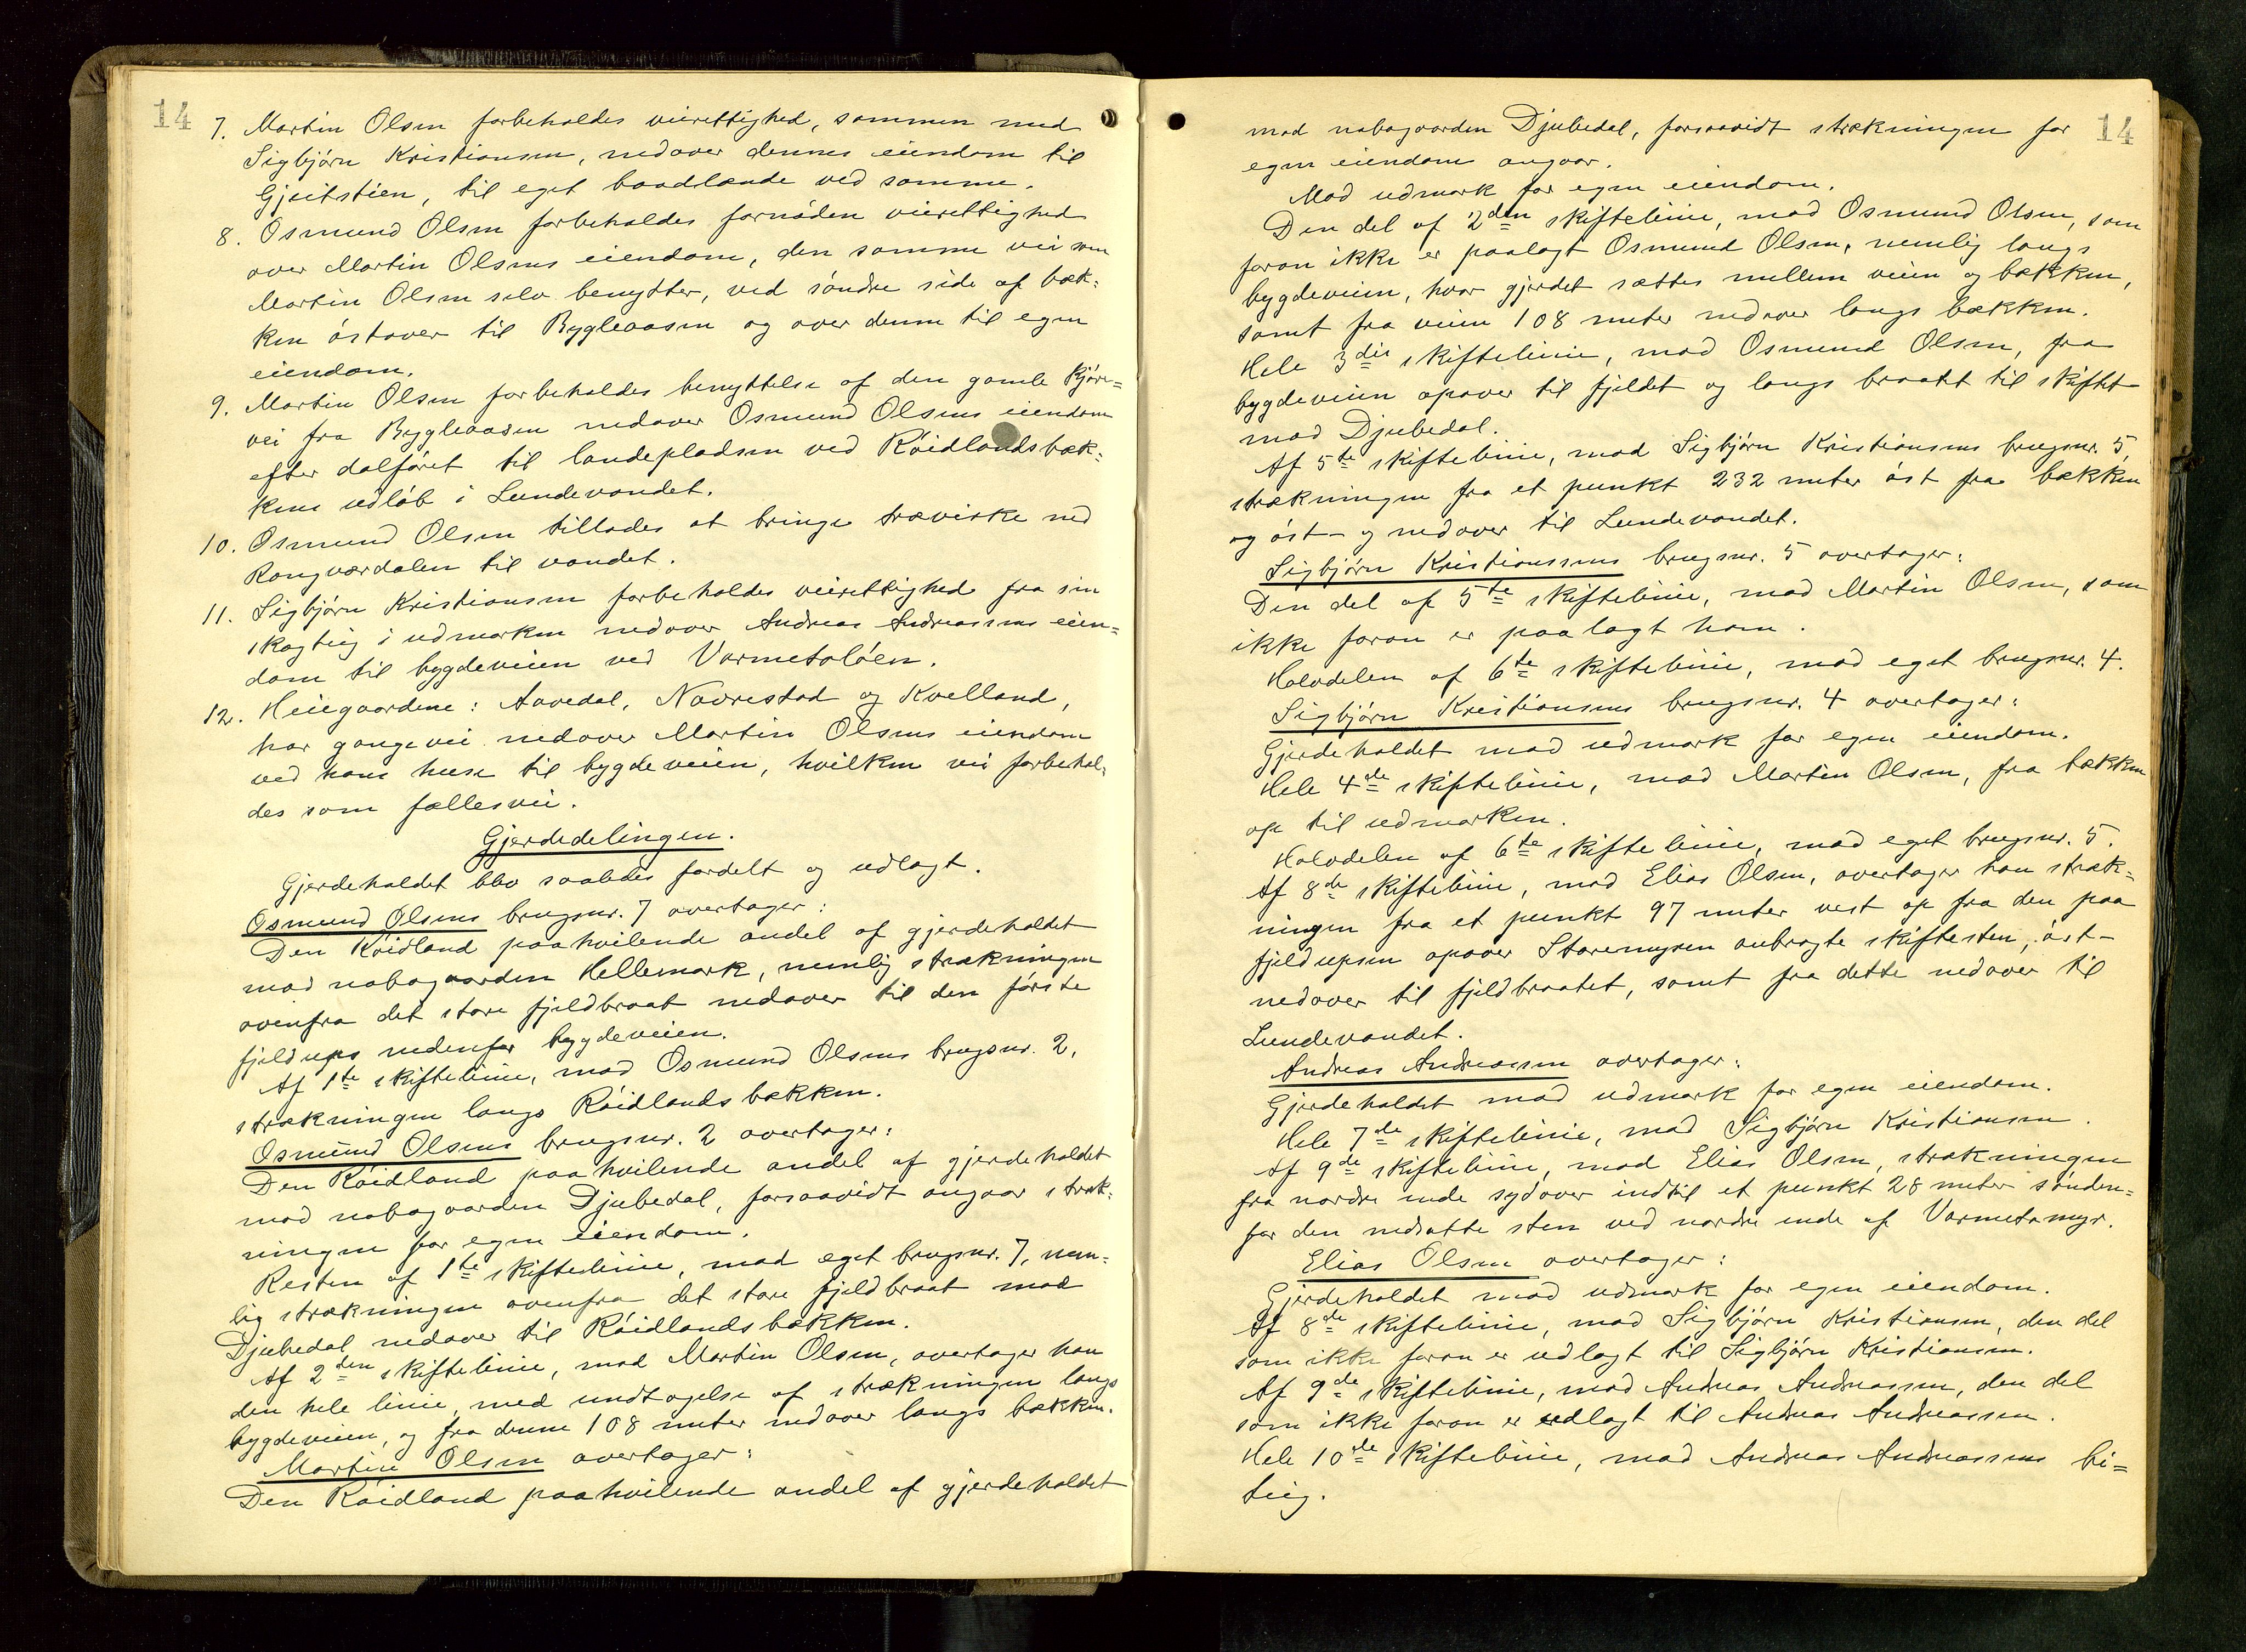 14
7. Martin Olsen forbeholdes veirettighed, sammen med
Sigbjörn Kristiansen, nedover dennes eiendom til
Gjeitstien, til eget baadlænde ved samme.
8. Osmund Olsen forbeholdes fornöden veirettighed
over Martin Olsens eiendom, den samme vei som
Martin Olsen selv benytter, ved söndre side af bæk-
ken östover til Bygleaasen og over denne til egen
eiendom.
9. Martin Olsen forbeholdes benyttelse af den gamle kjöre-
vei fra Bygleaasen nedover Osmund Olsens eiendom
efter dalföret til landepladsen ved Röidlandsbæk-
kens udlöb i Lundevandet.
10. Osmund Olsen tillades at bringe trævirke ned
Rongværdalen til vandet.
11. Sigbjörn Kristiansen forbeholdes veirettighed fra sin
skogteig i udmarken nedover Andreas Andreassens eien-
dom til bygdeveien ved Varmetslöen.
12. Heiegaardene: Aavedal, Navrestad og Kvelland,
har gangevei nedover Martin Olsens eiendom
ved hans huse til bygdeveien, hvilken vei forbehol-
des som fællesvei.
Gjerdedelingen.
Gjerdeholdet blev saaledes fordelt og udlagt.
Osmund Olsens brugsnr. 7 overtager:
Den Röidland paahvilende andel af gjerdeholdet
mod nabogaarden Hellemark, nemlig strækningen
ovenfra det store fjeldbraat nedover til den förste
fjeldups nedenfor bygdeveien.
Af 1te skiftelinie, mod Osmund Olsens brugsnr. 2,
strækningen langs Röidlandsbækken.
Osmund Olsens brugsnr. 2 overtager:
Den Röidland paahvilende andel af gjerdeholdet
mod nabogaarden Djubedal, forsaavidt angaar stræk-
ningen for egen eiendom.
Resten af 1te skiftelinie, mod eget brugsnr. 7, nem-
lig strækningen ovenfra det store fjeldbraat mod
Djubedal nedover til Röidlandsbækken.
Af 2den skiftelinie, mod Martin Olsen, overtager han
den hele linie, med undtagelse af strækningen langs
bygdeveien, og fra denne 108 meter nedover langs bækken.
Martin Olsen overtager:
Den Röidland paahvilende andel af gjerdeholdet
14
mod nabogaarden Djubedal, forsaavidt strækningen for
egen eiendom angaar.
Mod udmark for egen eiendom.
Den del af 2den skiftelinie, mod Osmund Olsen, som
foran ikke er paalagt Osmund Olsen, nemlig langs
bygdeveien, hvor gjerdet sættes mellem veien og bækken,
samt fra veien 108 meter nedover langs bækken.
Hele 3die skiftelinie, mod Osmund Olsen, fra
bygdeveien opover til fjeldet og langs braatet til skiftet
mod Djubedal.
Af 5te skiftelinie, mod Sigbjörn Kristiansens brugsnr. 5,
strækningen fra et punkt 232 meter öst fra bækken
og öst- og nedover til Lundevandet.
Sigbjörn Kristianssens brugsnr. 5 overtager:
Den del af 5te skiftelinie, mod Martin Olsen, som
ikke foran er paalagt ham.
Halvdelen af 6te skiftelinie, mod eget brugsnr. 4.
Sigbjörn Kristiansens brugsnr. 4 overtager:
Gjerdeholdet mod udmark for egen eiendom.
Hele 4de skiftelinie, mod Martin Olsen, fra bækken
op til udmarken.
Halvdelen af 6te skiftelinie, mod eget brugsnr. 5.
Af 8de skiftelinie, mod Elias Olsen, overtager han stræk-
ningen fra et punkt 97 meter vest op fra den paa
fjeldupsen opover Storemyren anbragte skiftesten, öst-
nedover til fjeldbraatet, samt fra dette nedover til
Lundevandet.
Andreas Andreassen overtager:
Gjerdeholdet mod udmark for egen eiendom.
Hele 7de skiftelinie, mod Sigbjörn Kristiansen.
Af 9de skiftelinie, mod Elias Olsen, strækningen
fra nordre ende sydover indtil et punkt 28 meter sönden-
for den nedsatte sten ved nordre ende af Varmetsmyr.
Elias Olsen overtager:
Gjerdeholdet mod udmark for egen eiendom.
Af 8de skiftelinie, mod Sigbjörn Kristiansen, den del
som ikke foran er udlagt til Sigbjörn Kristiansen.
Af 9de skiftelinie, mod Andreas Andreassen, den del
som ikke foran er udlagt til Andreas Andreassen.
Hele 10de skiftelinie, mod Andreas Andreassens bi-
teig.